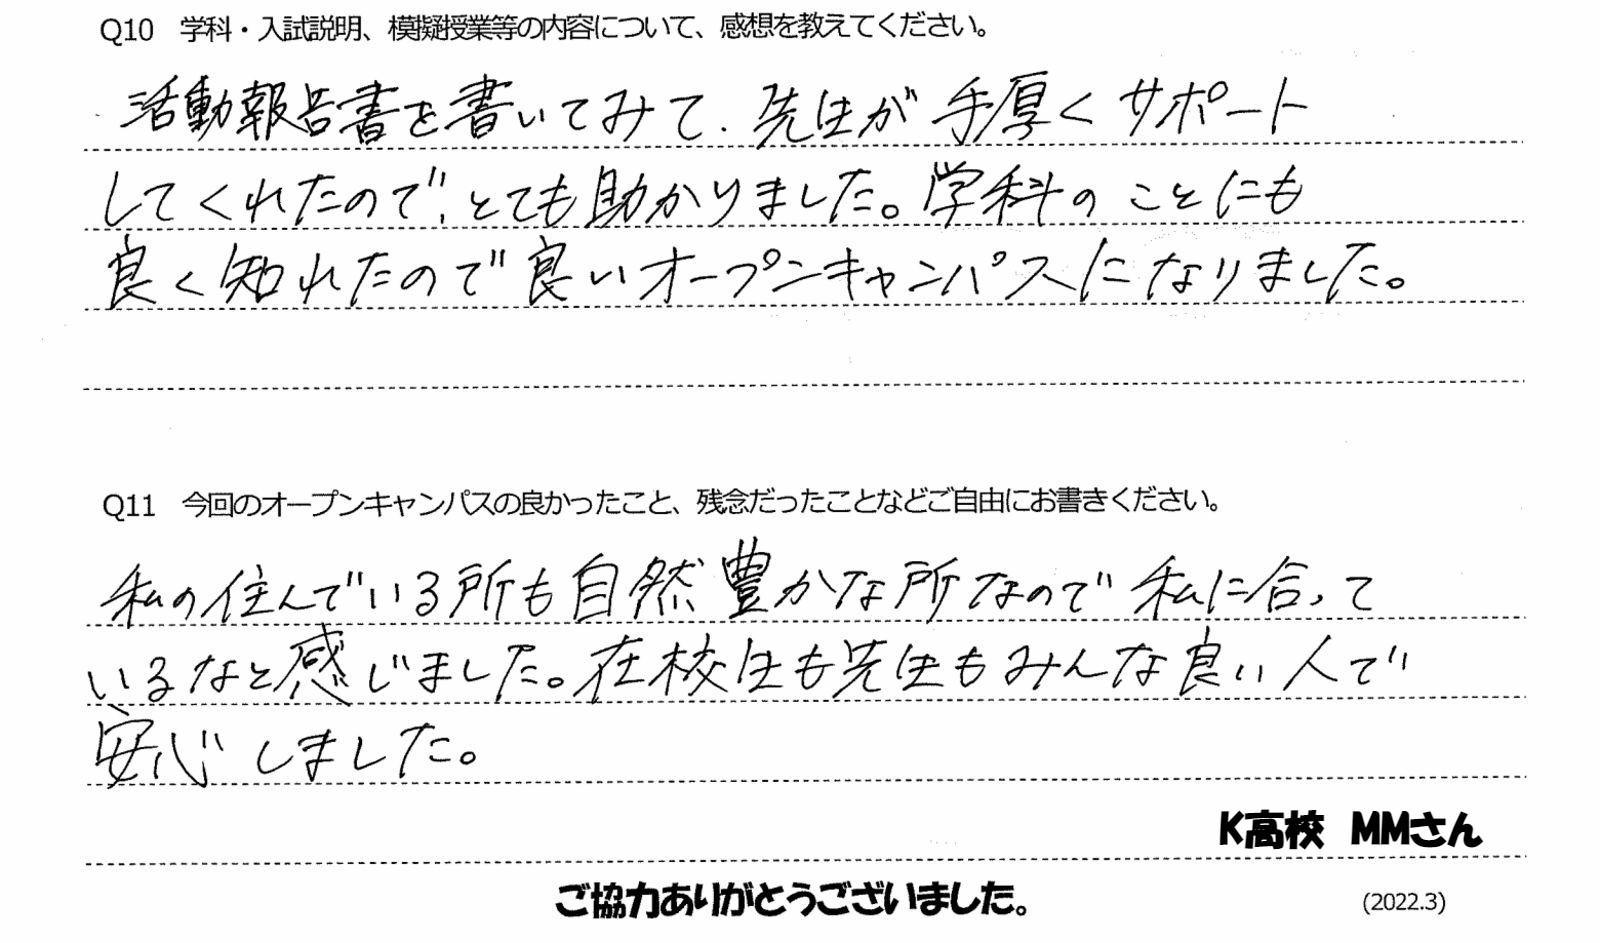 Q10 学科・入試説明、模擬授業等の内容について、感想を教えてください。
活動報告書を書いてみて、先生が手厚くサポート
してくれたので、とても助かりました。学科のことにも
良く知れたので良いオープンキャンパスになりました。
Q11 今回のオープンキャンパスの良かったこと、残念だったことなどご自由にお書きください。
私の住んでいる所も自然豊かな所なので私に合って
いるなと感じました。在校生も先生もみんな良い人で
安心しました。
K高校 MMさん
ご協力ありがとうございました。
(2022.3)